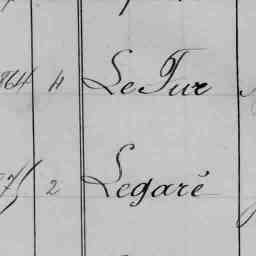 864 4 LeTur
75 2 Legaré